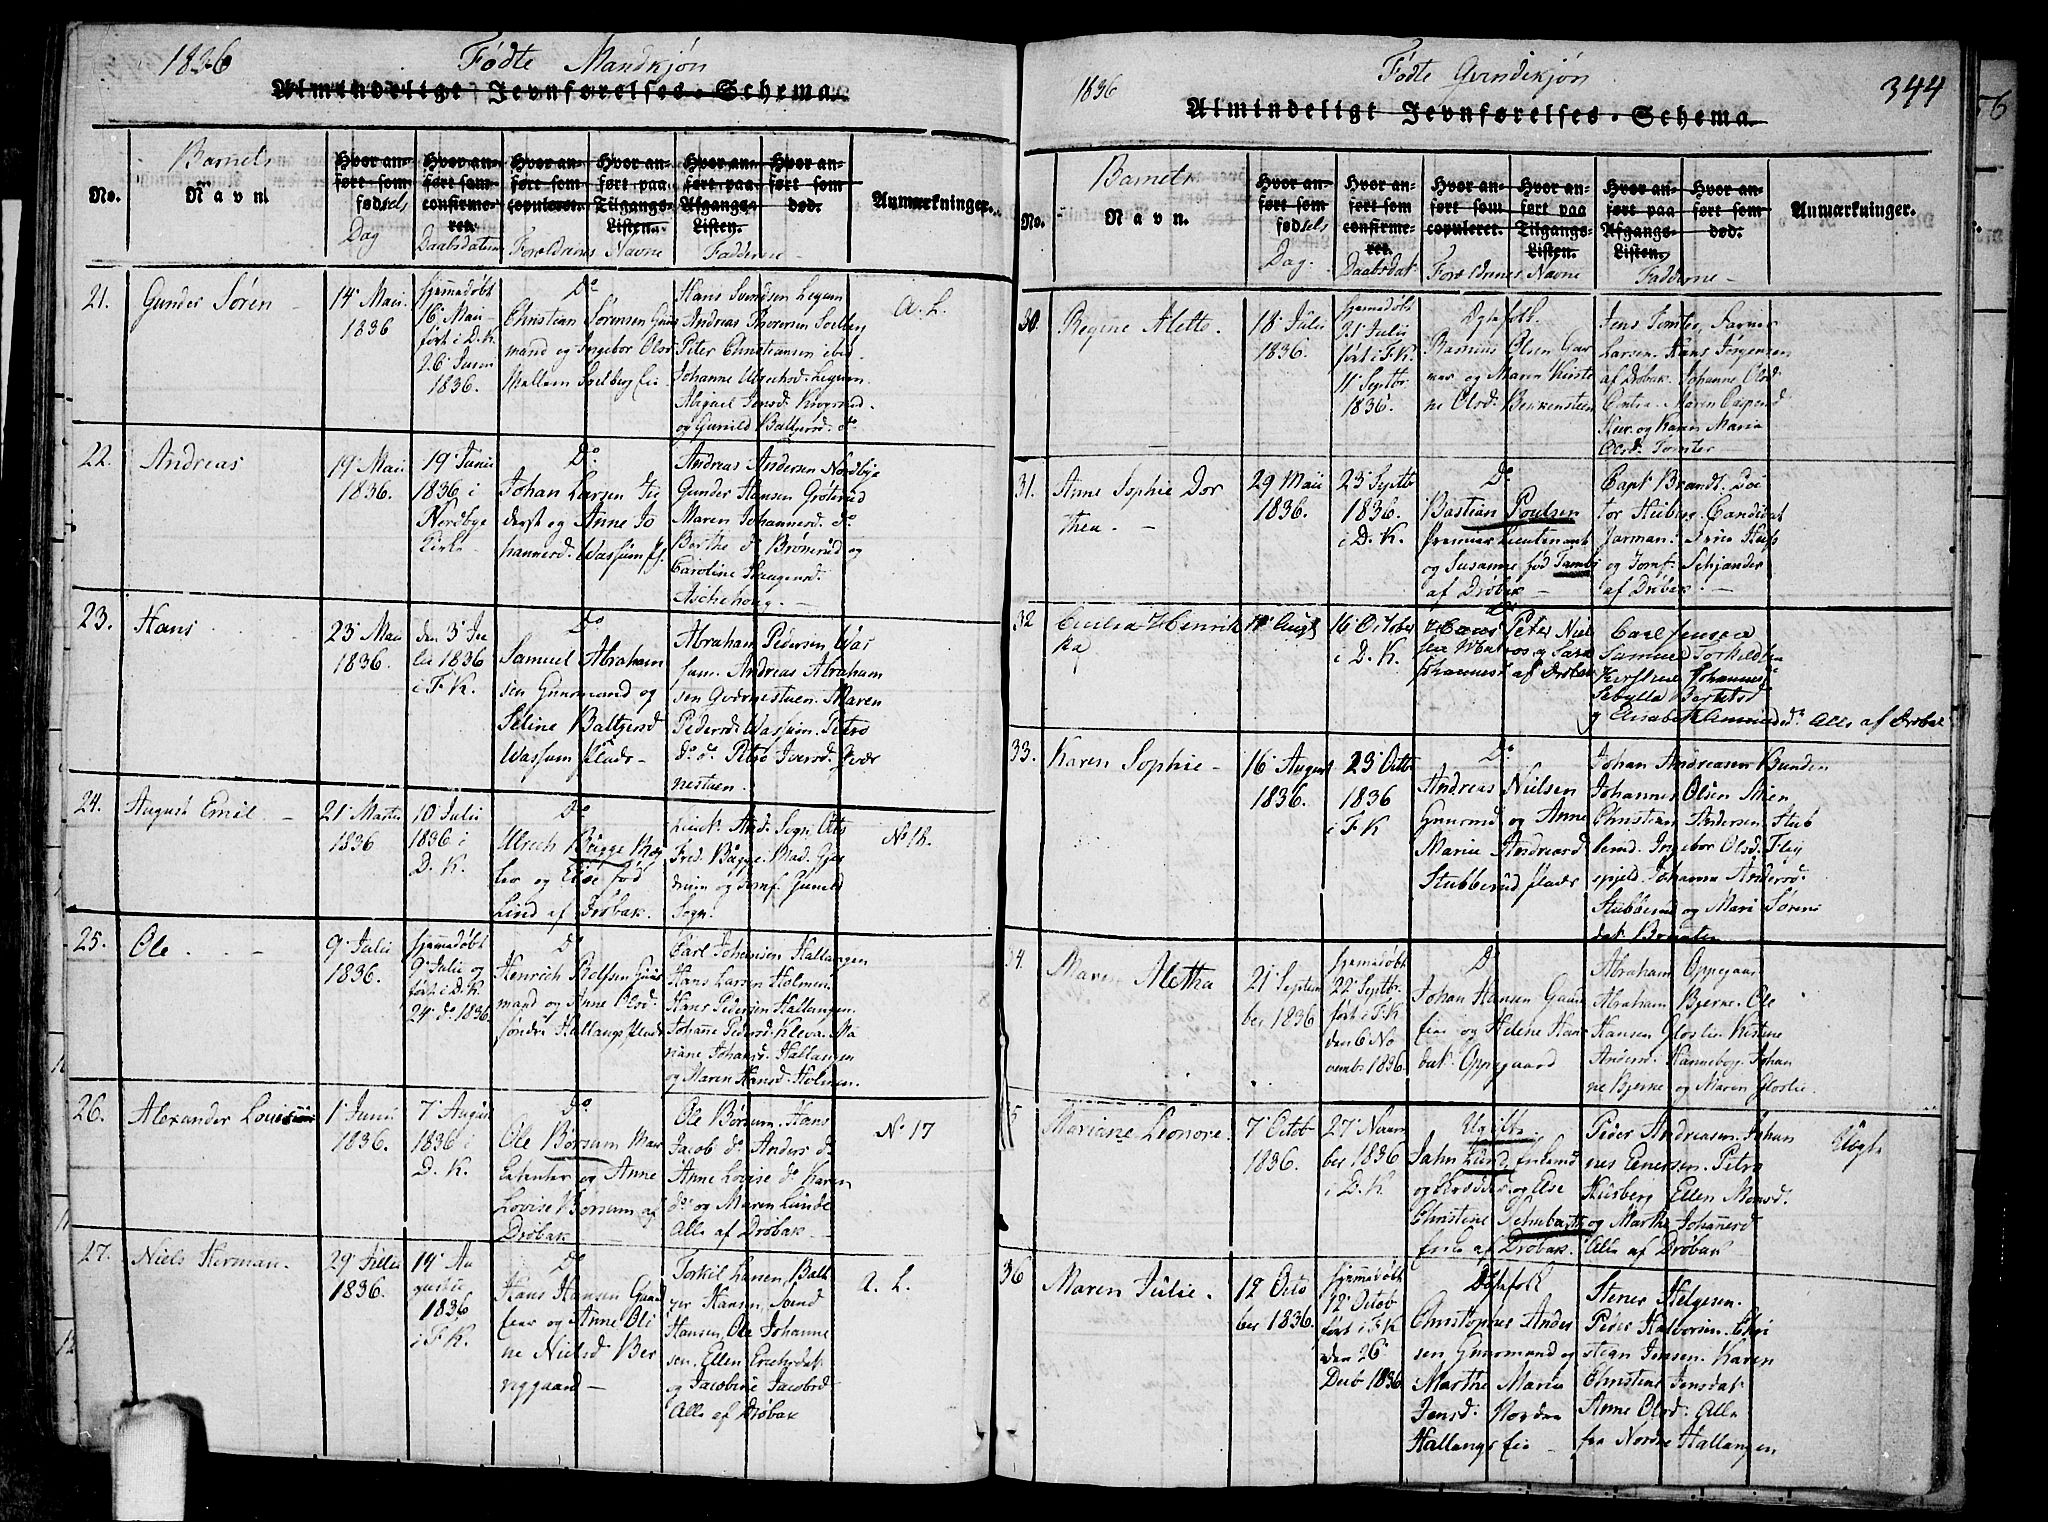 1836
Fødte Mandkjøn
Almindeligt Jevnførelses-Schema.
No.
Barnets
Navn
Hvor anført som fødsels
Dag
Hvor anført som confirmeret.
Daabsdaten
Hvor anført som copuleret.
Hvor anført paa Tilgangs-Listen.
Forældrenes Navne
Hvor anført paa Afgangs-Listen
Hvor anført som død.
Fadderne
Anmærkninger.
21.
Gunder Søren
14 Mai
1836
hjemmedøbt
16 Mai
ført i D.K.
26 Juni
1836.
Do
Christian Sørensen
mand og Ingebor Olsd
Mellem Solberg eie
Hans Svendsen Legum
Andreas Thoresen Solberg
Peter Christiansen ibid
Johanne Ulrichsd. Legum.
Abigael Jensd. Krogsrud.
og Gunild Baltzersd. do
A. L.
22.
Andreas
19 Mai
1836.
19 Juni
1836 i
Nordbye
Kirke
Do
Johan Larsen
og Anne Jo
hannesd. Wassum
Andreas Andersen Nordbye
Gunder Hansen Grøterud
Maren Johannesd. do
Berthe do Brønerud og
Caroline Haagensd.
Aschehoug.
23.
Hans
23 Mai
1836.
den 3 Ju
lii 1836
i F.K.
Do
Samuel Abraham
sen Gunmand og
Seline Baltzersd
Wassum Plads
Abraham Pedersen Was
sum. Andreas Abraham
sen Qværnestuen. Maren
Pedersd Wassum. Petro
do. do. Petro Iversd. Qvær
nestuen.
24.
August Emil
21 Martii
1836
10 Julii
1836 i
D. K.
Do
Ulrich Bugge
og Else fød
Lind af Drøbak.
Fred. Bugge. Mad.
og Jomf. Gunild
Sogn.
No 18.
25.
Ole
9 Julii
1836.
hjemmedøbt
9 Julii og
ført i D.K.
24 do 1836
Do
Henrich Rolfsen
mand og Anne Olsd.
søndre Hallangs Plads
Carl Johansen Hallangen
Hans Larsen Holmen
Hans Pedersen Hallangen.
Johanne Pedersd. Kleva. Ma
riane Johansd. Hallangen
og Maren Hansd. Holmen.
26.
Alexander Louis
1 Junii
1836.
7 August
1836 i
D. K.
Do
Ole Børsum
og Anne
Lovise Børsum af
Drøbak
Ole Børsum. Hans
Jacob do. Anders do
Anne Lovise do. Karen
do og Maren Lunde
Alle af Drøbak
No 17
27.
Niels Herman.
29 Julii
1836.
14 Au
gusti
1836
i F.K.
Do
Hans Hansen Gaard
eier og Anne Oli
ne Nielsd Ber
reggaard
Torkil Larsen. Balt
zer Hansen.
Hansen. Ole Johanne
sen. Ellen Erichsdat
og Jacobine Jacobsd
Alle af Drøbak
A. L.
1836
Fødte Qvindekjøn
344
Almindeligt Jevnførelses-Schema.
No.
Barnets
Navn.
Hvor anført som fødsels
Dag.
Hvor anført som confirmeret.
Daabsdat
Hvor anført som copuleret.
Hvor anført paa Tilgangs-Listen.
Forældrenes Navne
Hvor anført paa Afgangs-Listen.
Hvor anført som død.
Fadderne
Anmarkninger.
30.
Regine Alette.
18 Julii
1836.
hjemedøbt
21 Julii
ført i F.K.
11 Septbr
1836.
Ægtefolk
Rasmus Olsen Gar
ver og Maren Kirsti
ne Olsd. Benkensteen
Jens Tomter.
Larsen. Hans Jørgensen
af Drøbak. Johanne Olsd.
Maren
og Karen Maria
Olsd. Tomter
31.
Anne Sophie Dor
thea.
29 Maii
1836.
23 Septbr
1836.
i D. K.
Do
Bastian Poulsen
Premier Lieutenant
og Susanne fød Tambs
af Drøbak
Capt Brandt. Doc
tor Heiberg. Candidat
Jarman.
og Jomf. Schjander
af Drøbak.
32
Cecilia Henrik
ka
Augt
16 October
i D. K.
Hans Peter Niel
sen Matros og
Johannesd af Drøbak
Carl Jensen
Samuel Torkildsen
Kirstine Johannesd
Sebylla Bertelsd
g Elisabeth Amundsd. Alle af Drøbak
33.
Karen Sophie
16 August
1836.
23 Octb
1836
i F.K
Do
Andreas Nielsen
Gunmd og Anne
Maria Andreasd
Stubberud Plads
Johan Andreasen Bunden
Johannes Olsen
Christian Andersen Stub
berud. Ingebor Olsd. Fley
spjeld. Johanna Andersd.
Stubberud og Mari Sørens
dat. Braaten
34.
Maren Aletha
21 Septem
ber 1836
hjemmedøbt
22 Septbr.
ført i F.K
den 6 No
vembr 1836.
Do
Johan Hansen Gaard
eier og Helene Han
dat. Oppegaard
Abraham Oppegaar
Abraham Bjerne. Ole
Hansen Glosli. Kirstine
Andersd. Hannebog. Johan
ne Bjerne og Maren Glosli.
35
Mariane Leonore.
7 Octob
1836.
27 Novem
ber 1836
i D. K
Ugifte.
Jahn Lund
og Else
Christine Schubarth
af Drøbak.
Peder Andreasen. Johan
nes Enersen. Petra
Husberg Ellen Monsd.
og Marthe Johannesd.
Alle af Drøbak
Uægte
36
Maren Julie.
12 Octo
ber 1836.
hjemmedøbt
12 Octob
ført i F.K
den 26
Decb 1836
Ægtefolk
Christopher Ander
sen Gunmand og
Marthe Maria
Jensd. Nordre
Hallangs eie
Stener Helgesen.
Peder Halvorsen. Chri
stian Jensen. Karen
Christine Jensdat.
Anne Olsd. Alle
fra Nordre Hallangen